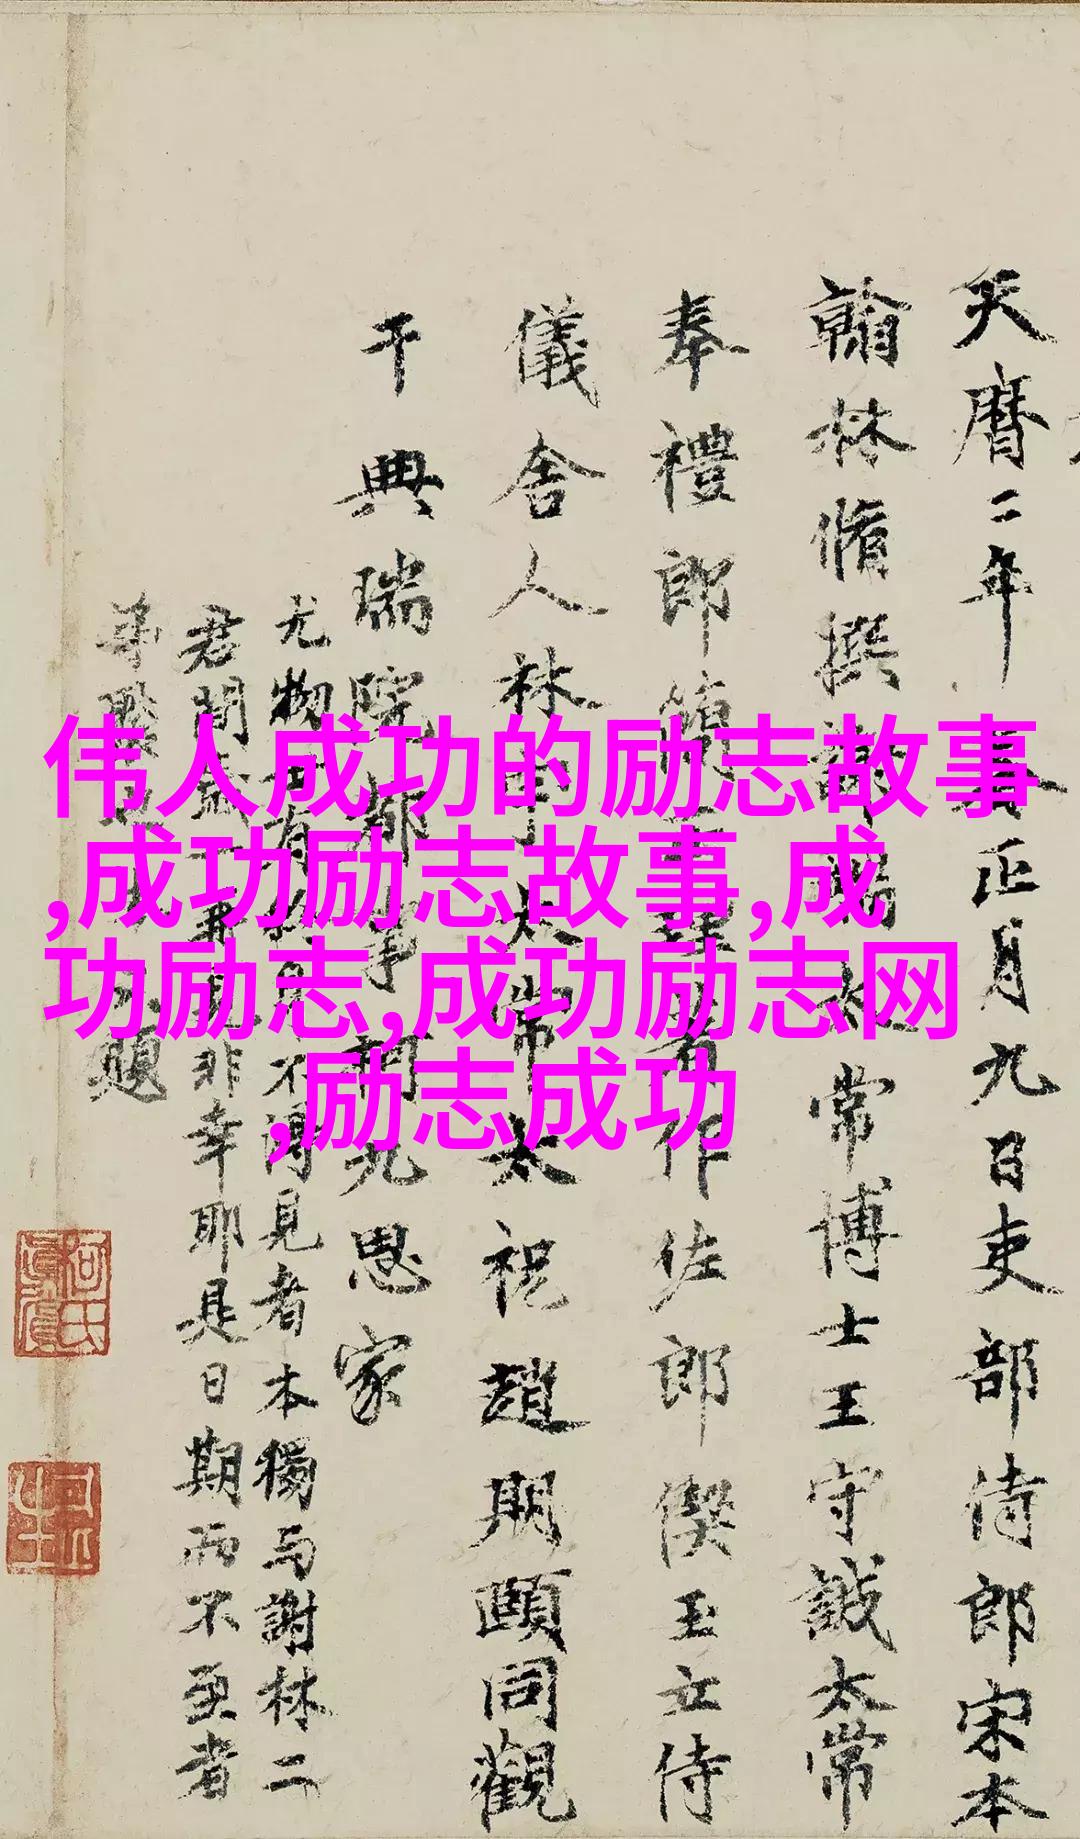 伟人成功的励志故事
,成功励志故事,成
功励志,成功励志网
,励志成功
天曆二年春正月九日吏部侍郎宋本
翰林脩撰太常博士王守誠太常
奉禮郎簡作佐郎偰玉立侍
儀舍人林太常太祝趙期頤同觀
于典瑞院都事柯九思家
尤物有不得見者本獨与謝林二
君非幸耶是日期而不至者
題